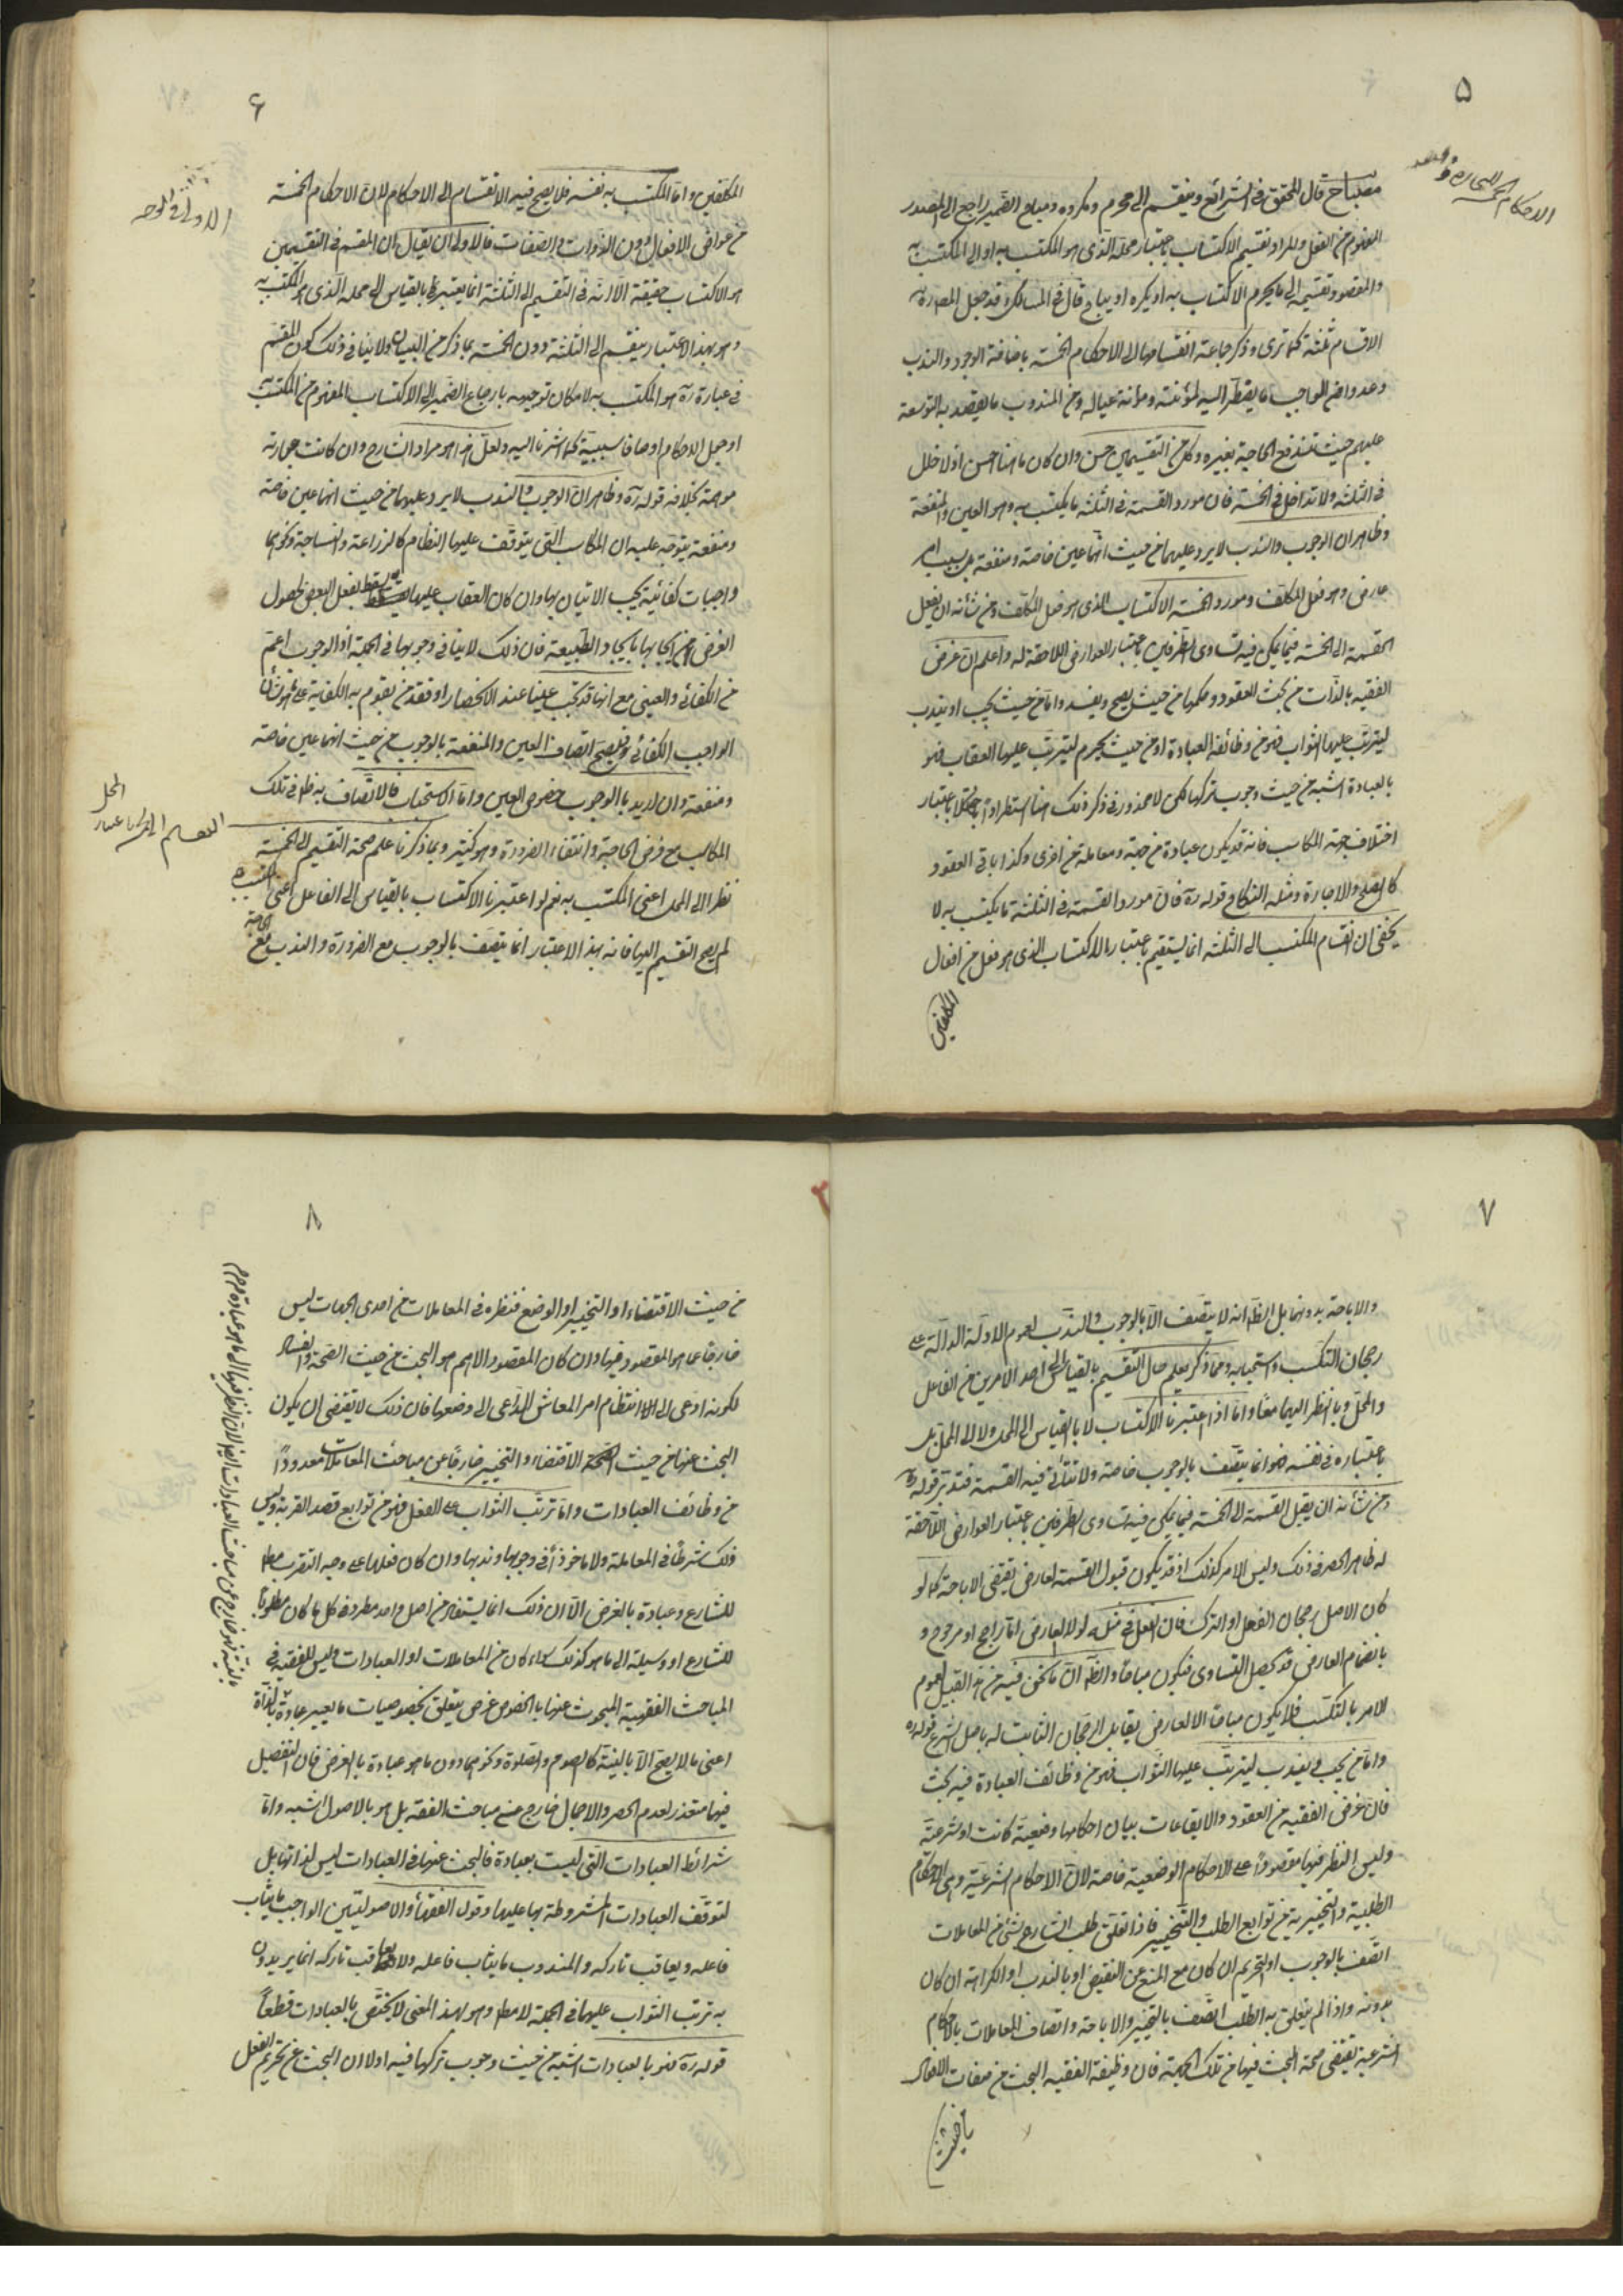 ٥
الاحكام الخمسة للتجارة
مصباح قال المحقق في الشرائع وينقسم الى محرم ومكروه ومباح الضمير راجع الى المصدر
المفهوم من الفعل والمراد تقسيم الاكتساب باعتبار محله الذي هو المكتسب به او الى المكتسب به
والمقصود تقسيمه الى ما يحرم الاكتساب به او يكره او يباح قال في المسالك وقد جعل المصنف ره
الاقسام ثلثة كما ترى وذكر جماعة انقسامها الى الاحكام الخمسة باضافة الوجوب والندب
وعدوا من الواجب ما يضطر اليه لمؤنته ومؤنة عياله ومن المندوب ما يقصد به التوسعة
عليهم حيث تندفع الحاجة بغيره وكل من التقسيمين حسن وان كان ما هنا احسن اذ لا خلل
في الثلثة ولا تداخل في الخمسة فان مورد القسمة في الثلثة ما يكتسب به وهو العين والمنفعة
وظاهر ان الوجوب والندب لا يرد عليهما من حيث انهما عين خاصة ومنفعة بل بسبب امر
عارض وهو فعل المكلف ومورد الخمسة الاكتساب الذي هو فعل المكلف ومن شأنه ان يقبل
القسمة الى الخمسة فيما يمكن فيه تساوي الطرفين باعتبار العوارض اللاحقة له واعلم ان غرض
الفقيه بالذات من بحث العقود وحكمها من حيث يصح ويفسد واما من حيث يجب او يندب
ليترتب عليها الثواب فهو من وظائف العبادة او من حيث يحرم ليترتب عليها العقاب فهو
بالعبادة اشبه من حيث وجوب تركها لكن لا محذور في ذكر ذلك هنا استطرادا باعتبار
اختلاف جهة المكاسب فانه قد يكون عبادة من جهة ومعاملة من اخرى وكذا باقي العقود
كالصلح والاجارة ومثله النكاح قوله ره فان مورد القسمة في الثلثة ما يكتسب به لا
يخفى ان انقسام المكتسب الى الثلثة انما يستقيم باعتبار الاكتساب الذي هو فعل من افعال
المكلفين
٦
المكلفين واما المكتسب به نفسه فلا يصح فيه الانقسام الى الاحكام لان الاحكام الخمسة
من عوارض الافعال دون الذوات والصفات فالاولى ان يقال ان المقسم في التقسيمين
هو الاكتساب حقيقة الا انه في التقسيم الى الثلثة انما يعتبر بالقياس الى محله الذي هو المكتسب به
وهو بهذا الاعتبار ينقسم الى الثلثة دون الخمسة بما ذكر من البيان ولا ينافي ذلك كون المقسم
في عبارة ره هو المكتسب به لامكان توجيهه بارجاع الضمير الى الاكتساب المفهوم من المكتسب به
او جعل الاحكام اوصافا سببية كما اشرنا اليه ولعل هذا هو مراد الشارح وان كانت عبارته
موهمة بخلافه قوله ره وظاهر ان الوجوب والندب لا يرد عليهما من حيث انهما عين خاصة
ومنفعة يتوجه عليه ان المكاسب التي يتوقف عليها النظام كالزراعة والنساجة ونحوهما
واجبات كفائية يجب الاتيان بها وان كان العقاب عليها يسقط بفعل البعض لحصول
الغرض من ايجابها بايجاد الطبيعة فان ذلك لا ينافي وجوبها في الجملة اذ الوجوب اعم
من الكفائي والعيني مع انها قد تجب عينا عند الانحصار او فقد من يقوم به الكفاية على ما هو شأن
الواجب الكفائي فيصح اتصاف العين والمنفعة بالوجوب من حيث انهما عين خاصة
ومنفعة وان اريد بالوجوب خصوص العين واما الاستحباب فالاتصاف به ظ في تلك
المكاسب مع فرض الحاجة وانتفاء الضرورة وهو كثير وبما ذكرنا علم صحة التقسيم الى الخمسة
نظرا الى المحل اعني المكتسب به نعم لو اعتبرنا الاكتساب بالقياس الى الفاعل اعني المكتسب
لم يصح التقسيم اليها فانه بهذا الاعتبار انما يتصف بالوجوب مع الضرورة والندب مع الحاجة
٧
والاباحة بدونهما بل الظ انه لا يتصف الا بالوجوب والندب لعموم الادلة الدالة على
رجحان التكسب واستحبابه ومما ذكر يعلم حال التقسيم بالقياس الى احد الامرين من الفاعل
والمحل وبالنظر اليهما معا واما اذا اعتبرنا الاكتساب لا بالقياس الى المحل ولا الى المحل بل
باعتباره في نفسه فهو انما يتصف بالوجوب خاصة ولا تتأتى فيه القسمة فتدبر قوله ره
ومن شأنه ان يقبل القسمة الى الخمسة فيما يمكن فيه تساوي الطرفين باعتبار العوارض اللاحقة
له ظاهر الحصر في ذلك وليس الامر كذلك اذ قد يكون قبول القسمة لعارض يقتضي الاباحة كما لو
كان الاصل رجحان الفعل او الترك فان الفعل في مثله لولا العارض اما راجح او مرجوح و
بانضمام العارض قد يحصل التساوي فيكون مباحا والظ ان ما نحن فيه من هذا القبيل لعموم
الامر بالتكسب فلا يكون مباحا الا لعارض يقابل الرجحان الثابت له باصل الشرع قوله ره
واما من يجب ويندب ليترتب عليها الثواب فهو من وظائف العبادة فيه بحث
فان غرض الفقيه من العقود والايقاعات بيان احكامها وضعية كانت او شرعية
وليس النظر فيها مقصورا على الاحكام الوضعية خاصة لان الاحكام الشرعية وهي الاحكام
الطلبية والتخييرية من توابع الطلب والتخيير فاذا تعلق طلب الشارع بشئ من المعاملات
اتصف بالوجوب او التحريم ان كان مع المنع عن النقيض او بالندب او الكراهة ان كان
بدونه واذا لم يتعلق به الطلب اتصف بالتخيير والاباحة واتصاف المعاملات بالاحكام
الشرعية يقتضي صحة البحث فيها من تلك الجهة فان وظيفة الفقيه البحث من صفات الافعال
٨
من حيث الاقتضاء او التخيير او الوضع فنظره في المعاملات من احدى الجهات ليس
خارجا عما هو المقصود فيها وان كان المقصود الاهم هو البحث من حيث الصحة والفساد
لكونه ادعى الى انتظام امر المعاش الداعي الى وضعها فان ذلك لا يقتضي ان يكون
البحث عنها من حيث الاقتضاء والتخيير خارجا عن مباحث المعاملات معدودا
من وظائف العبادات واما ترتب الثواب على الفعل فهو من توابع قصد القربة وليس
ذلك شرطا في المعاملة ولا ماخوذا في وجوبها وندبها وان كان فعلها على وجه التقرب مطلوبا
للشارع وعبادة بالعرض الا ان ذلك انما يستفاد من اصل واحد مطرد في كل ما كان مطلوبا
للشارع او وسيلة الى ما هو كذلك سواء كان من المعاملات او العبادات وليس للفقيه في
المباحث الفقهية المبحوث عنها بالخصوص غرض يتعلق بخصوصيات ما يصير عبادة بالذات
اعني ما لا يصح الا بالنية كالصوم والصلوة ونحوهما دون ما هو عبادة بالعرض فان التفصيل
فيها متعذر لعدم الحصر والاجمال خارج عن مباحث الفقه بل هو بالاصول اشبه واما
شرائط العبادات التي ليست بعبادة فالبحث عنها في العبادات ليس لذاتها بل
لتوقف العبادات المشروطة بها عليها وقول الفقهاء والاصوليين الواجب ما يثاب
فاعله ويعاقب تاركه والمندوب ما يثاب فاعله ولا يعاقب تاركه انما يريدون
به ترتب الثواب عليهما في الجملة لا مطلقا وهو بهذا المعنى لا يختص بالعبادات قطعا
قوله ره فهو بالعبادات اشبه من حيث وجوب تركها فيه اولا ان البحث عن تحريم الفعل